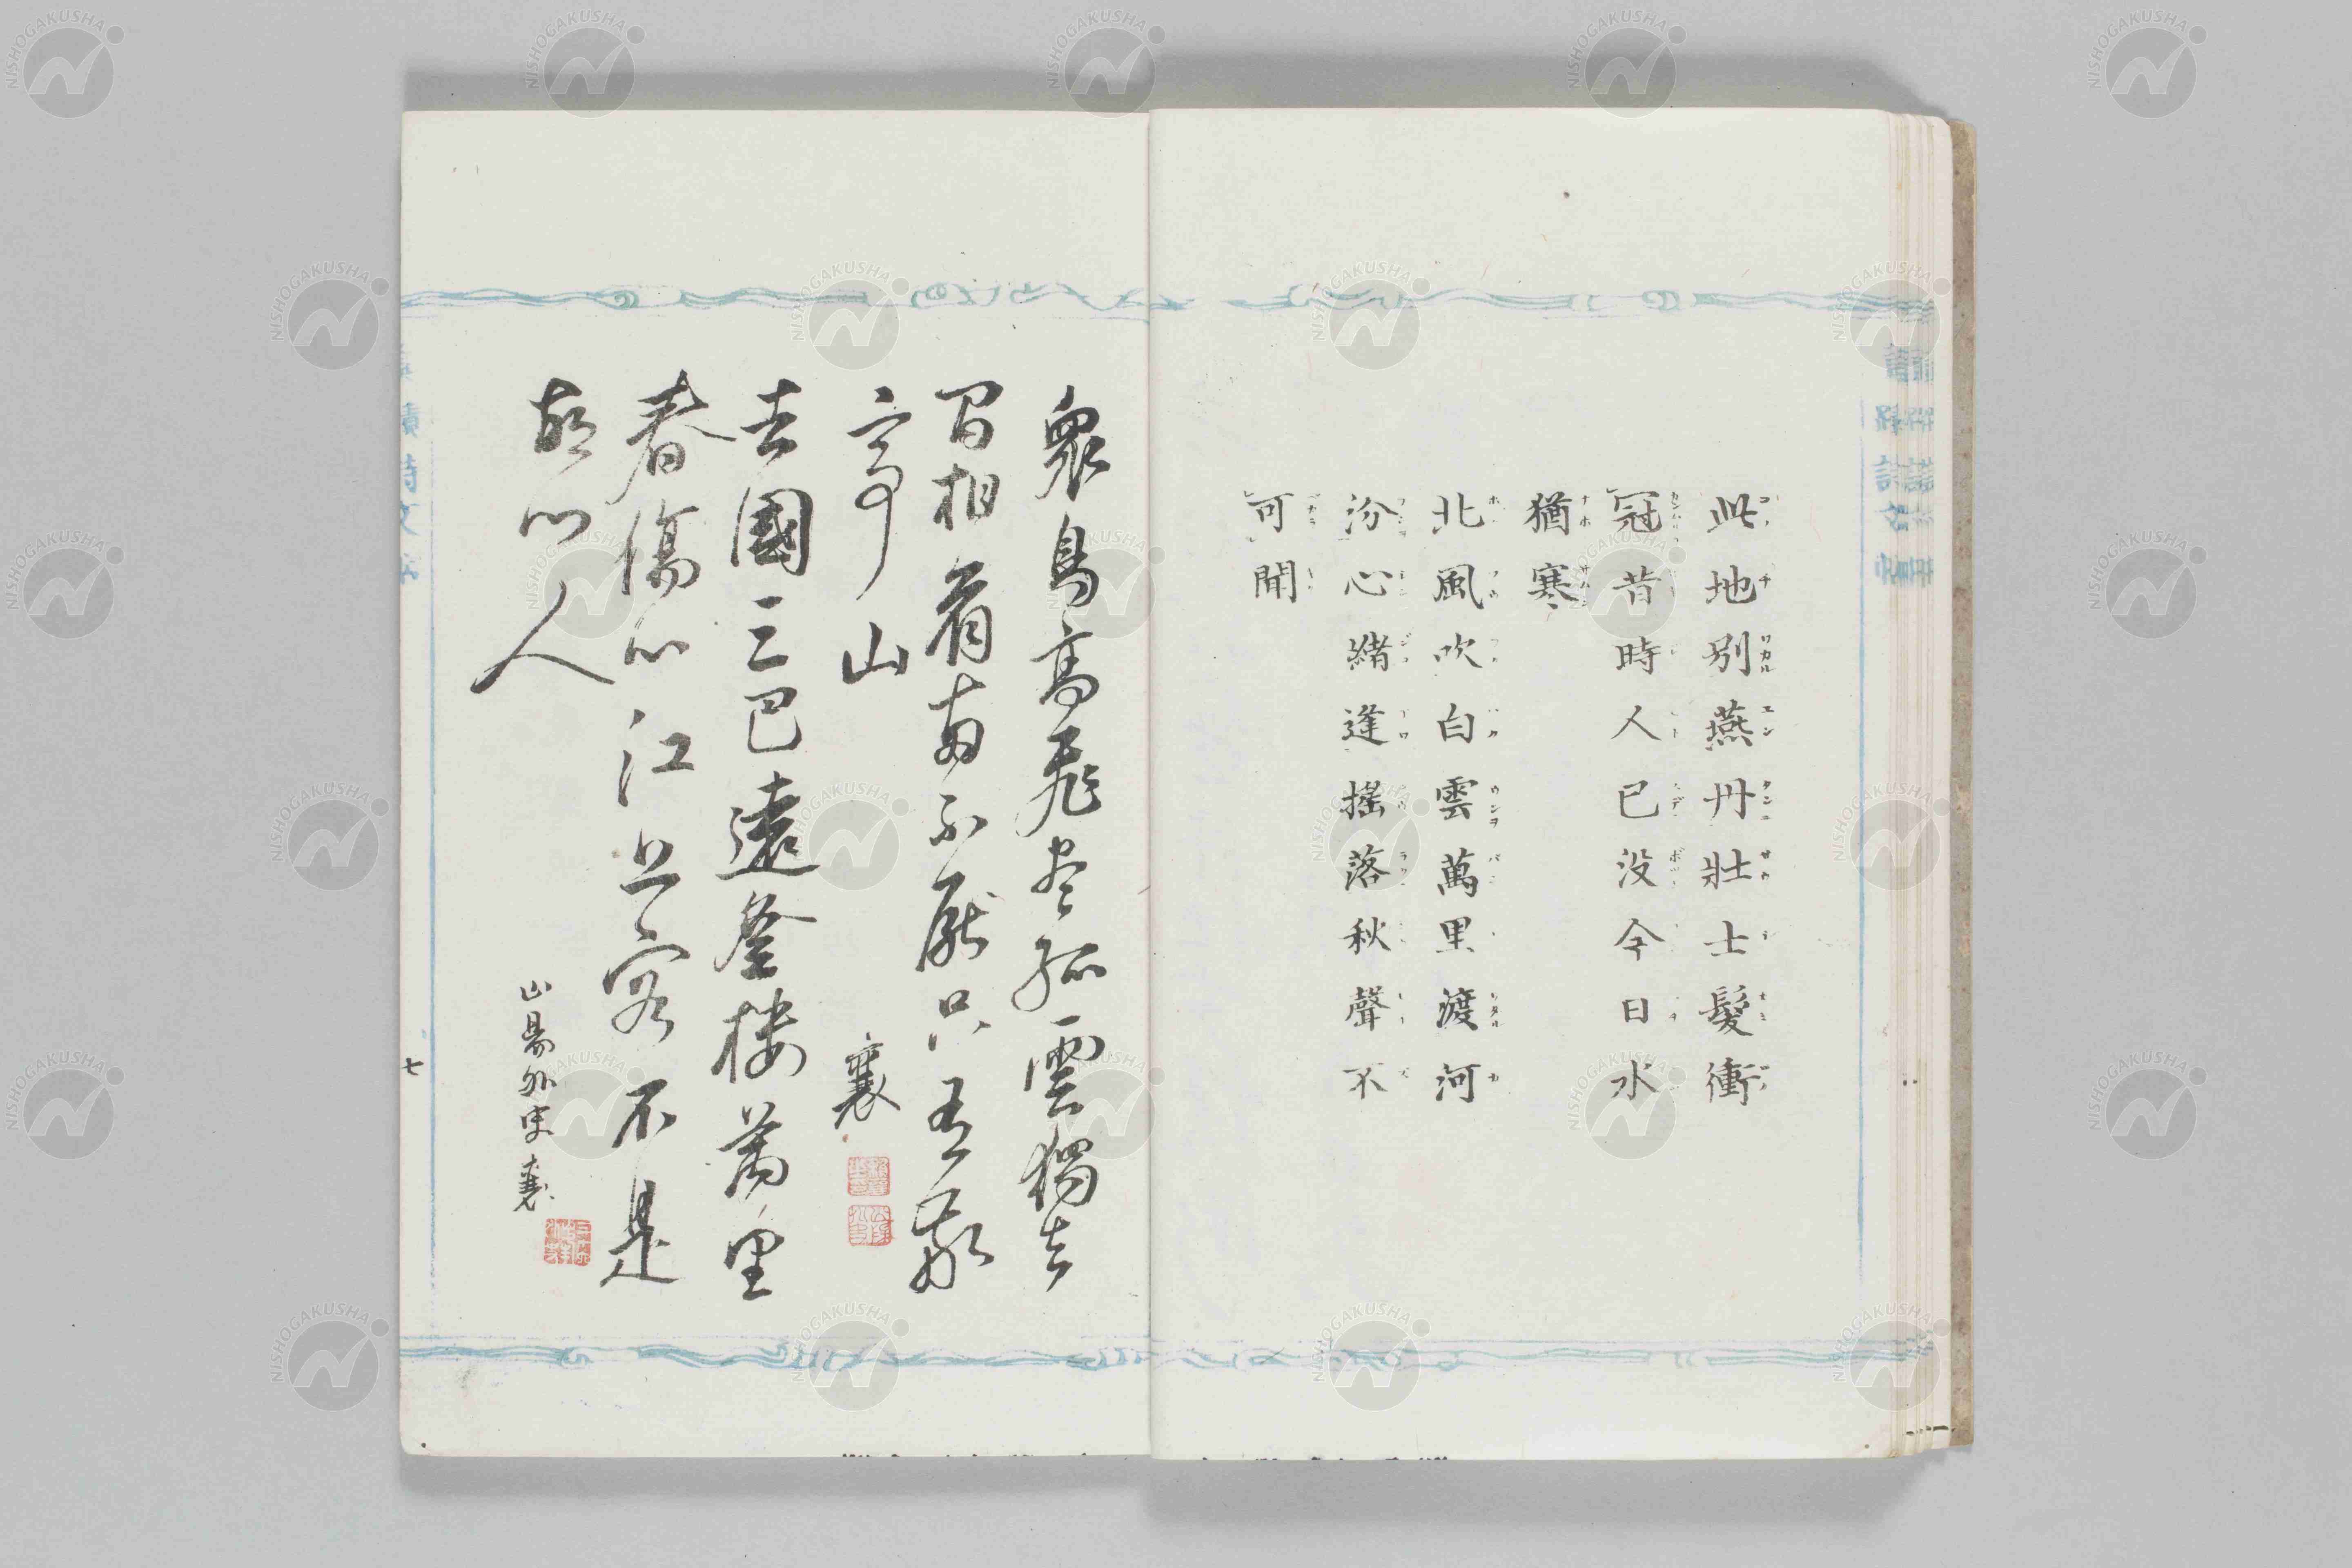 此地別燕丹壯士髮衝
冠昔時人已没今日水
猶寒
北風吹白雲萬里渡河
汾心緒逢搖落秋聲不
可聞
衆鳥高飛尽孤雲獨去
閒相看両不厭只有敬
亭山 襄
去國三巴遠登樓萬里
春傷心江上客不是
故郷人
山陽外史襄
七
NISHOGAKUSHA